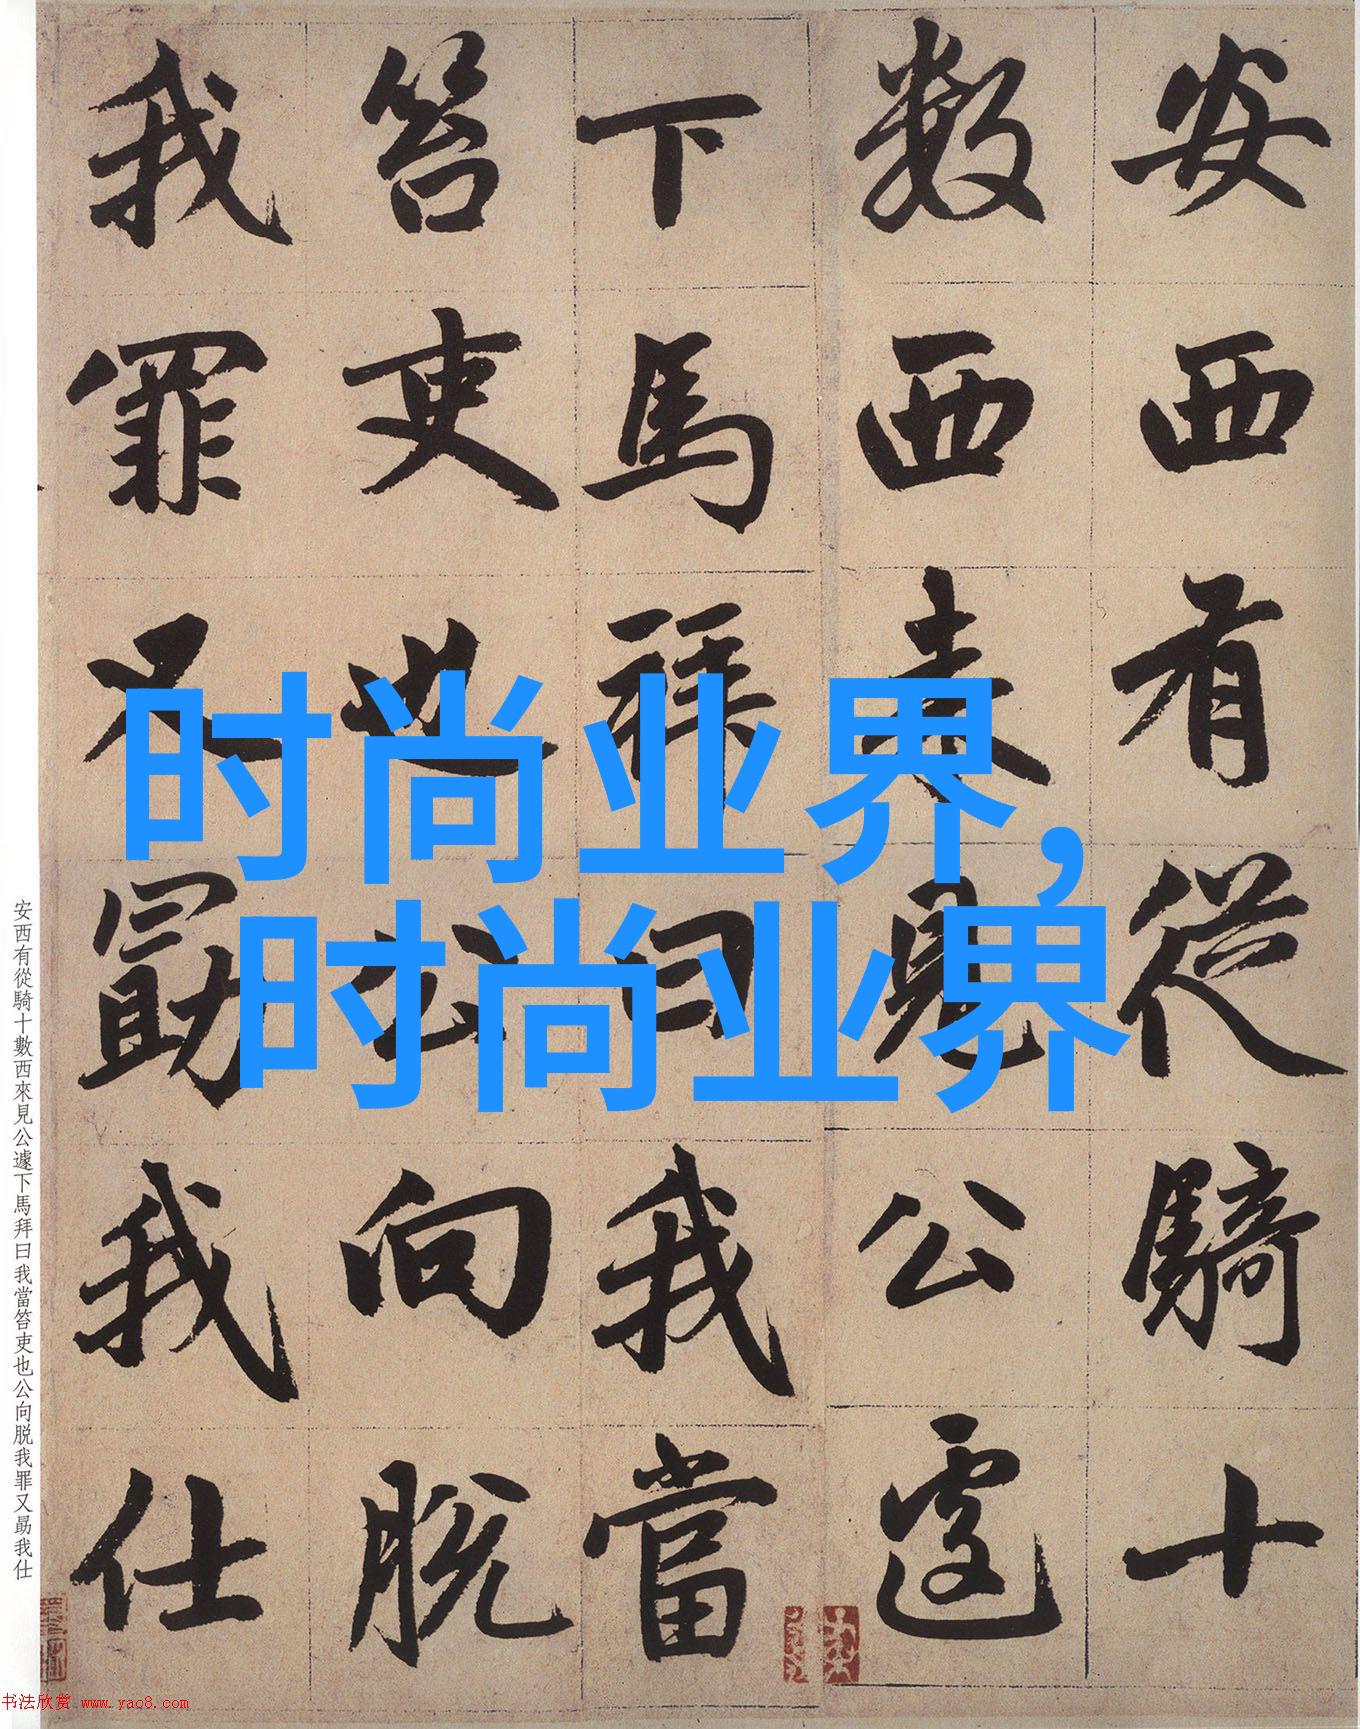 安西有從騎十
數西來見公遽
下馬拜曰我當
笞吏也公向脱
我罪又勗我仕
时尚业界,
时尚业界
安西有從騎十數西來見公遽下馬拜曰我當笞吏也公向脱我罪又勗我仕
书法欣赏 www.yac8.com